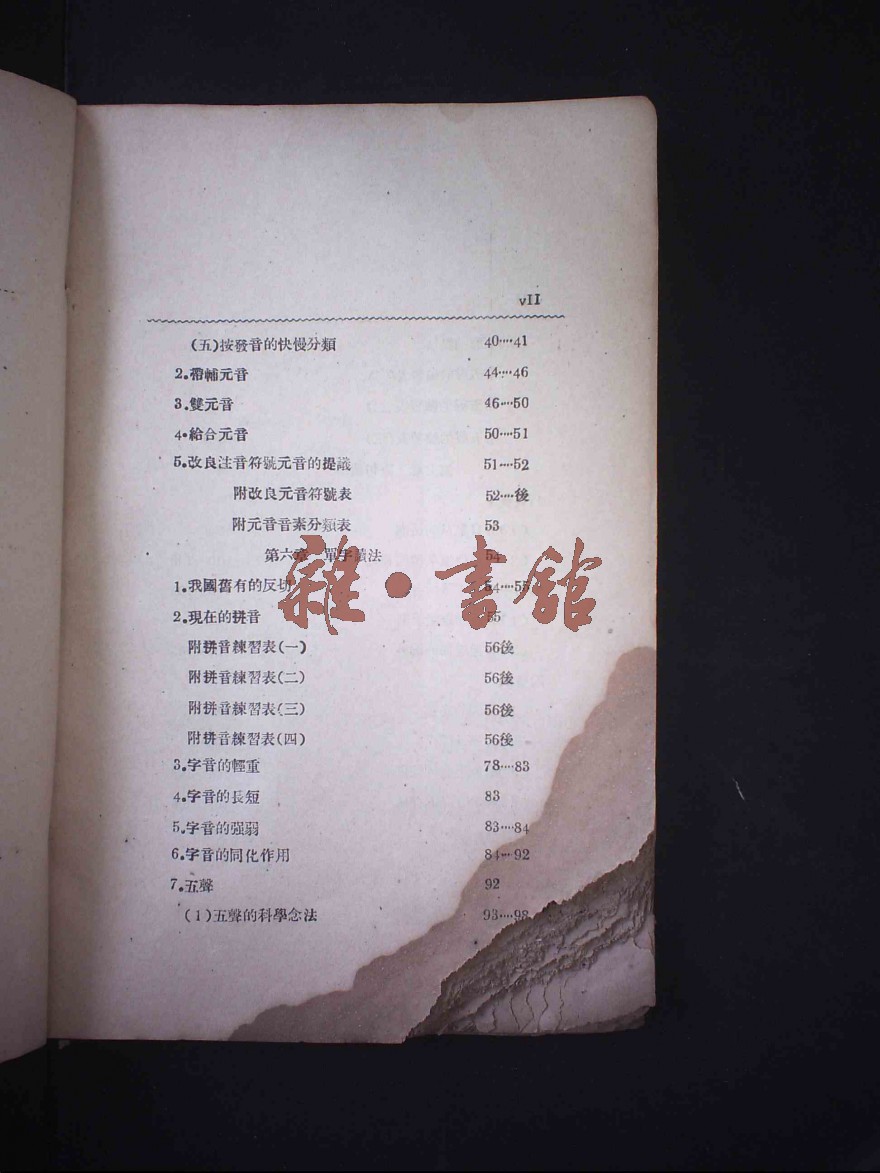 vII
(五)按發音的快慢分類 40····41
2.帶輔元音 44····46
3.雙元音 46····50
4.給合元音 50····51
5.改良注音符號元音的提議 51····52
附改良元音符號表 52····後
附元音音素分類表 53
第六章 單字讀法 54
1.我國舊有的反切 54····55
2.現在的拼音 55
附拼音練習表(一) 56後
附拼音練習表(二) 56後
附拼音練習表(三) 56後
附拼音練習表(四) 56後
3.字音的輕重 78····83
4.字音的長短 83
5.字音的强弱 83····84
6.字音的同化作用 84····92
7.五聲 92
(1)五聲的科學念法 93····98
雜·書館